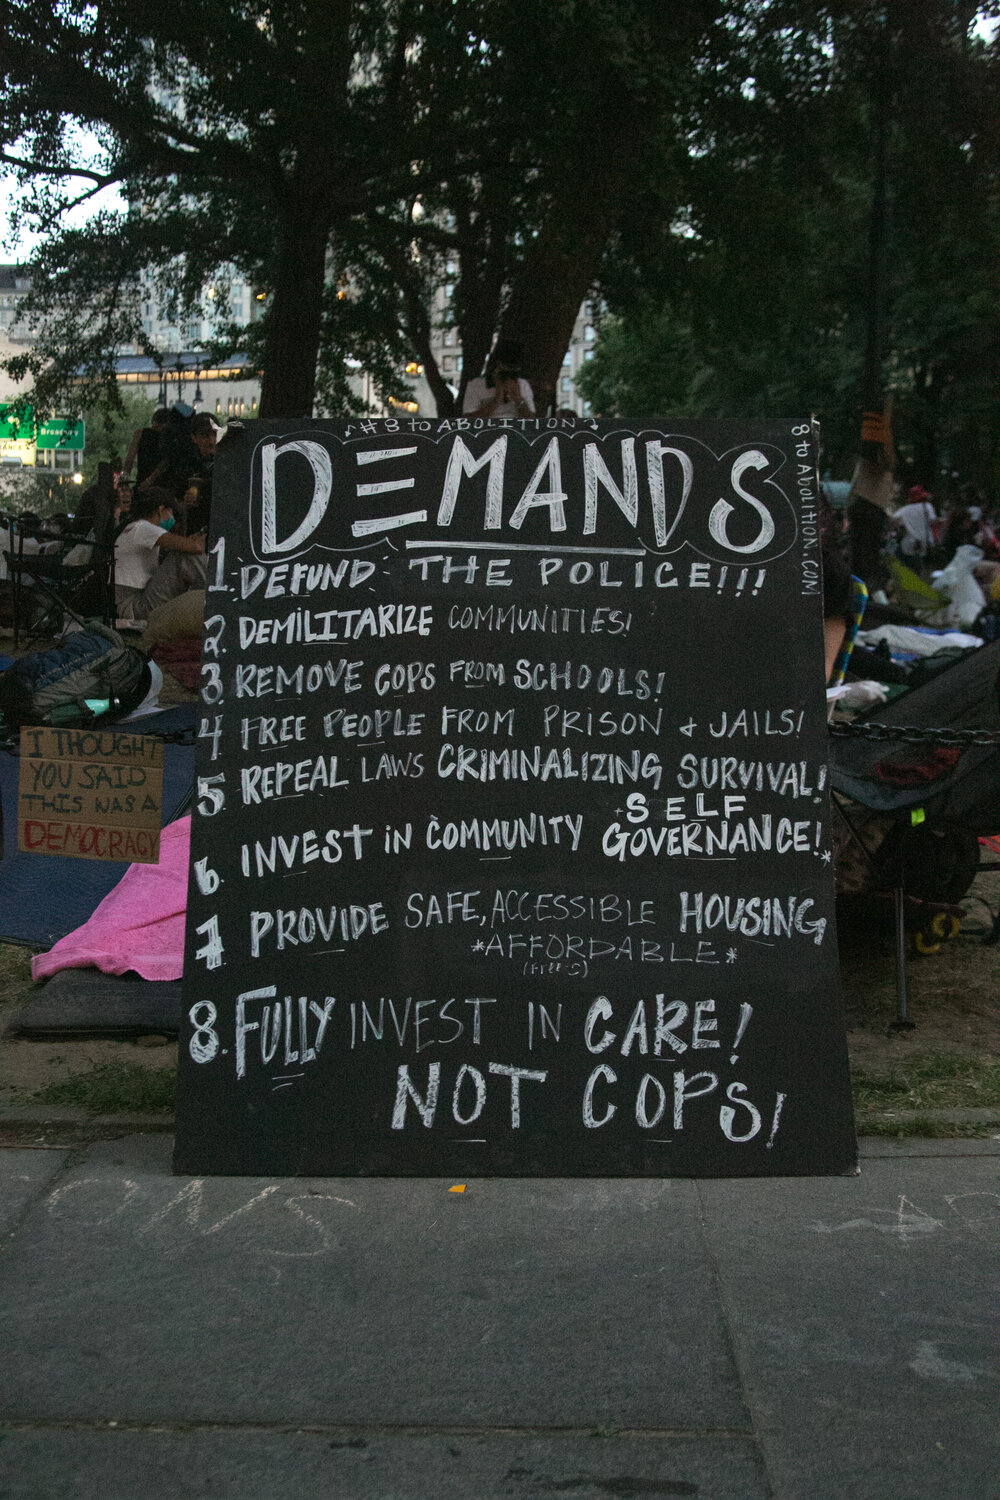 #8 TO ABOLITION
DEMANDS
8 to ABOLITION.COM
1. DEFUND THE POLICE!!!
2. DEMILITARIZE COMMUNITIES!
3. REMOVE COPS FROM SCHOOLS!
4 FREE PEOPLE FROM PRISON & JAILS!
5 REPEAL LAWS CRIMINALIZING SURVIVAL!
6. INVEST iN COMMUNITY SELF
GOVERNANCE!*
7 PROVIDE SAFE, ACCESSIBLE HOUSING
*AFFORDABLE*
8. FULLY INVEST IN CARE!
NOT COPS!
I THOUGHT
YOU SAID
THIS WAS A
DEMOCRACY
Broadway